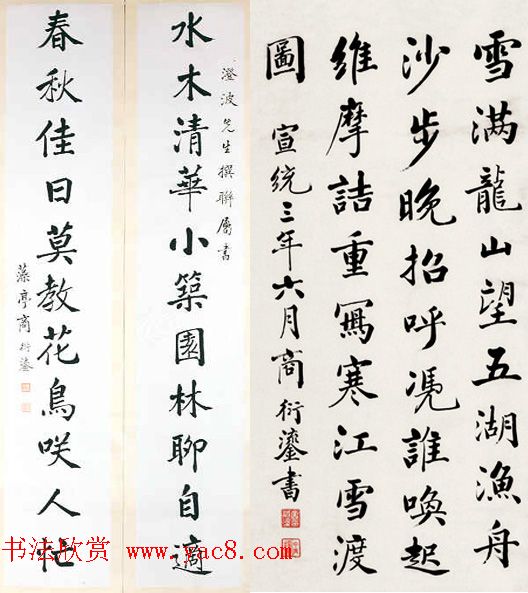 水木清華小築園林聊自適
澄波先生撰聯屬書
春秋佳日莫教花鳥咲人忙
藻亭商衍鎏
雪满龍山望五湖漁舟
沙步晚招呼凭誰喚起
維摩詰重寫寒江雪渡
圖
宣統三年六月商衍鎏書
书法欣赏 www.yac8.com